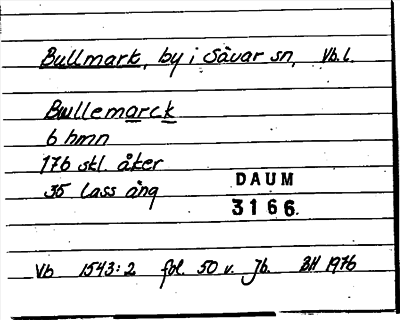 Bullmark, by i Sävar sn, Vb. l.
Bullemarck
6 hmn
176 skl. åker
35 lass äng
DAUM
3166.
Vb 1543:2 fol. 50 v. Jb. BH 1976